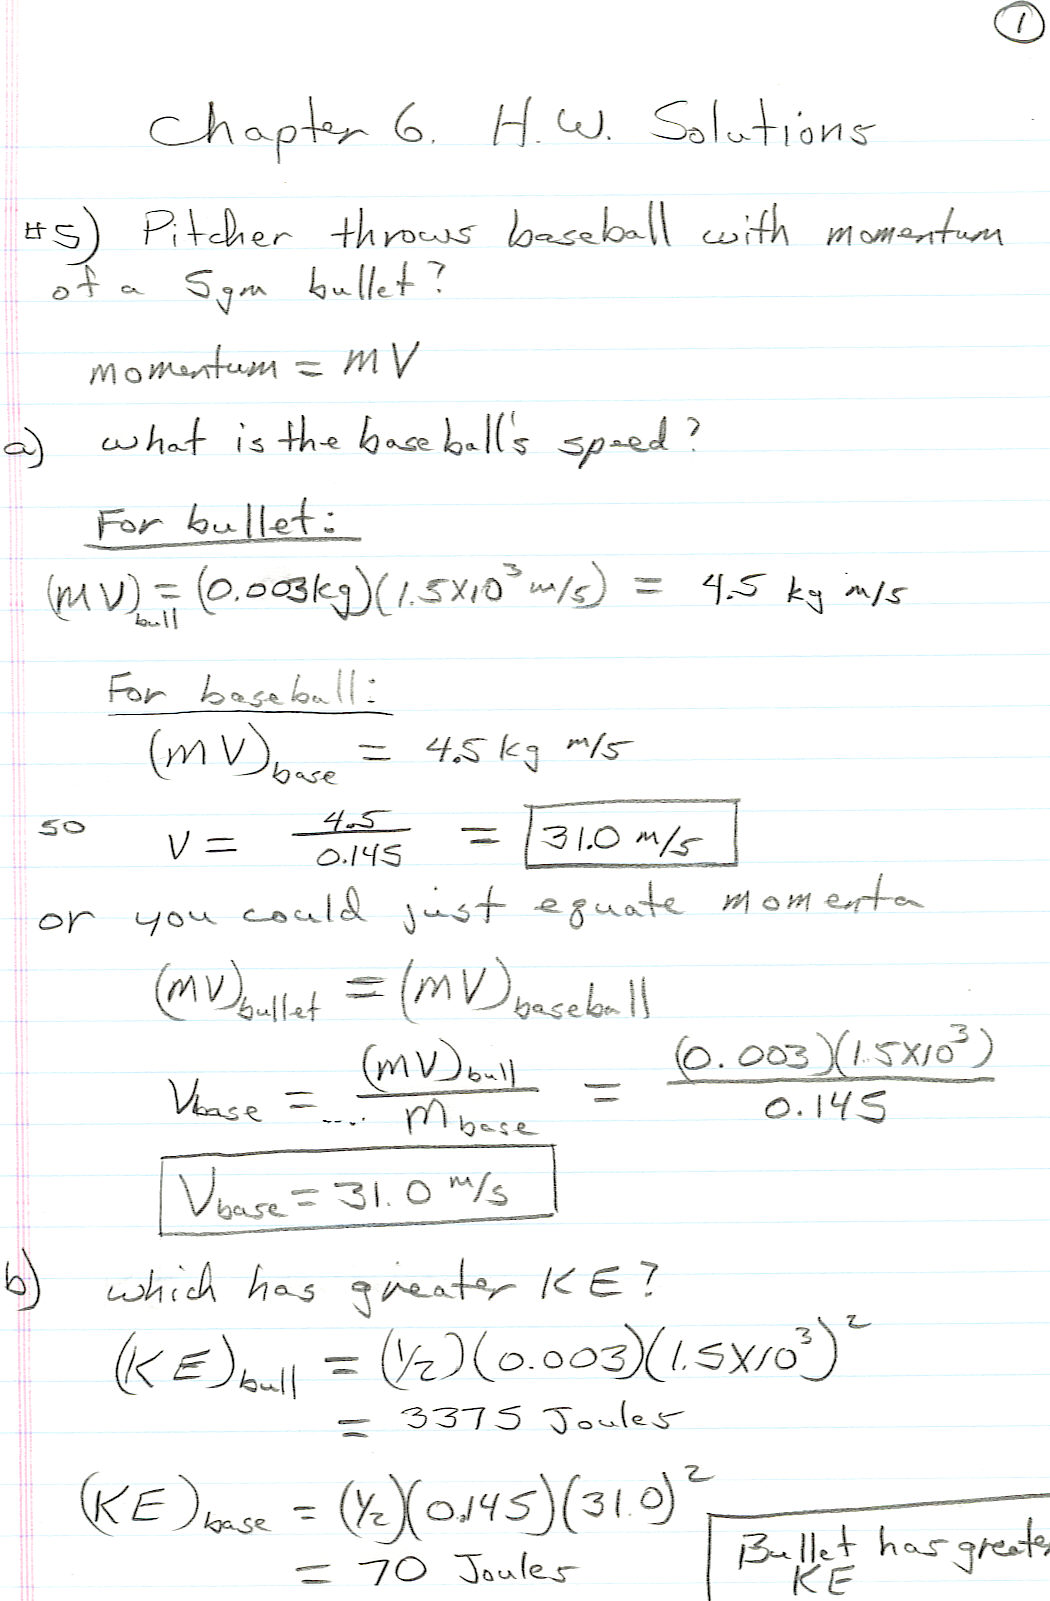 1
Chapter 6. H.W. Solutions
#5) Pitcher throws baseball with momentum
of a 5gm bullet?
momentum = mV
a) what is the baseball's speed?
For bullet:
(mV)bull = (0.003kg)(1.5x10³ m/s) = 4.5 kg m/s
For baseball:
(mV)base = 4.5 kg m/s
so V = 4.5/0.145 = 31.0 m/s
or you could just equate momenta
(mV)bullet = (mV)baseball
Vbase = .... (mV)bull/mbase = (0.003)(1.5x10³)/0.145
Vbase = 31.0 m/s
b) which has greater KE?
(KE)bull = (1/2)(0.003)(1.5x10³)²
= 3375 Joules
(KE)base = (1/2)(0.145)(31.0)²
= 70 Joules
Bullet has greater
KE